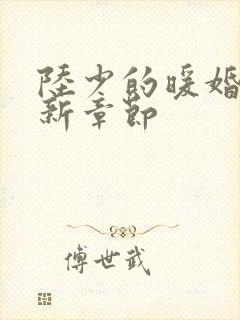 陸少的暖婚
新章節
傅世武